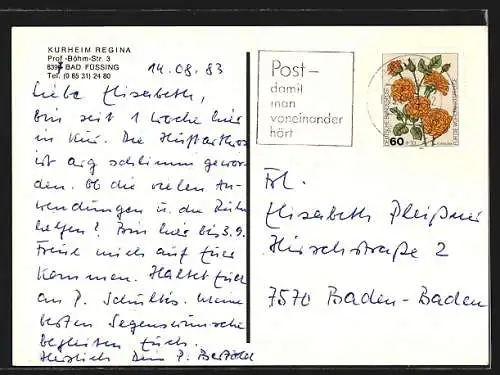 KURHEIM REGINA
Prof.-Böhm-Str. 3
8397 BAD FÜSSING
Tel. (0 85 31) 24 80
14.08.83
Liebe Elisabeth,
bin seit 1 Woche hier
in Kur. Die Hüftarthrose
ist arg schlimm gewor-
den. Ob die vielen An-
wendungen u. die Ruhe
helfen? Bin hier bis 3.9.
Freue mich auf Euer
Kommen. Haltet Euch
an P. Schultis. Meine
besten Segenswünsche
begleiten Euch.
Herzlich Dein P. Berthold
Post-
damit
man
voneinander
hört
60
Frl.
Elisabeth Pleißner
Hirschstraße 2
7570 Baden-Baden